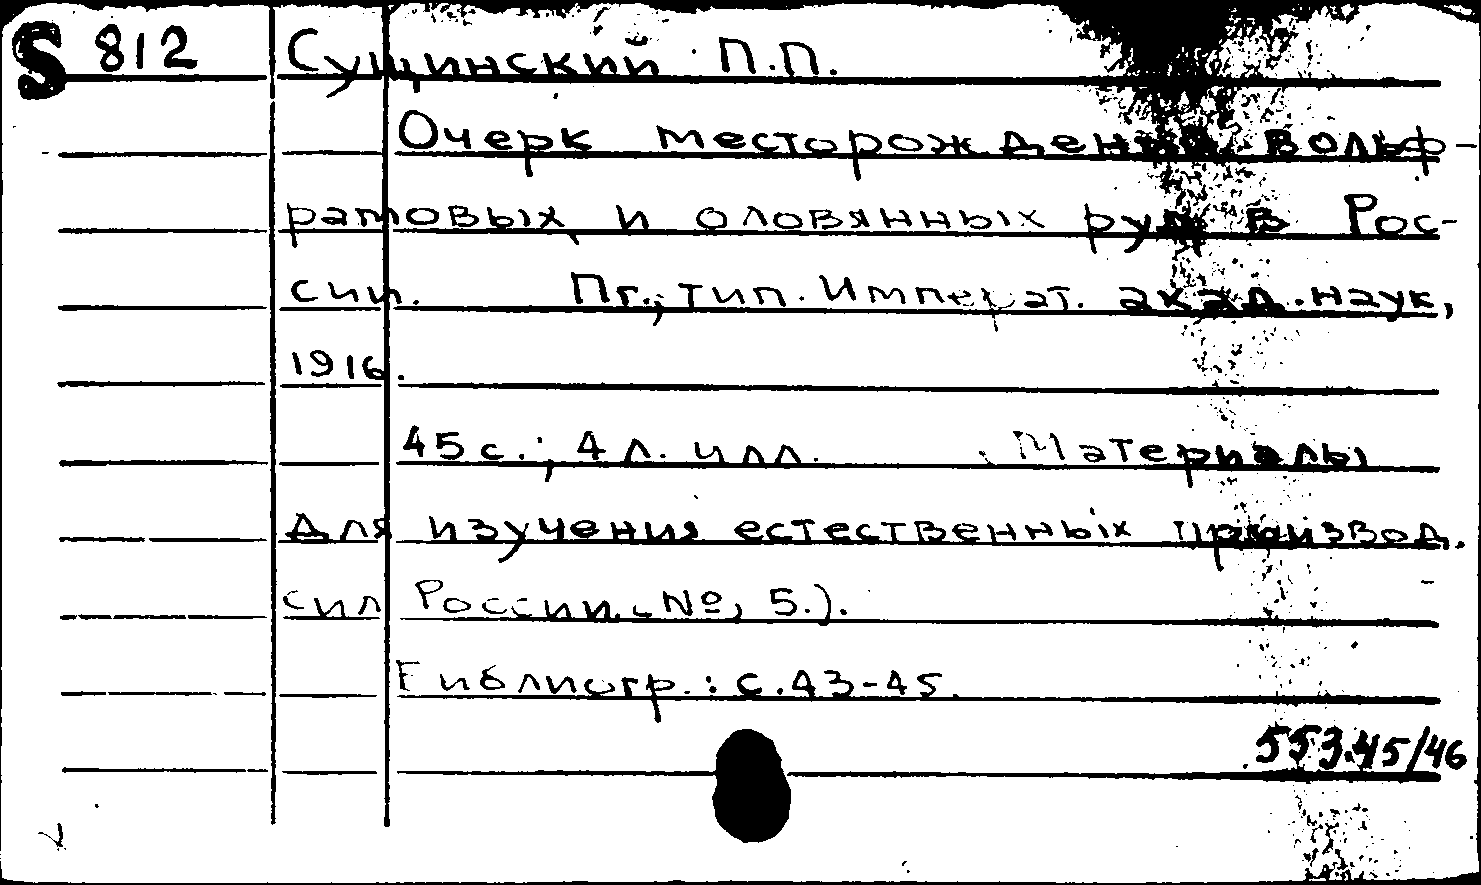 S 812 Сущинский П.П.
Очерк месторождений вольф-
рамовых и оловянных руд в Рос-
сии. Пг., тип. Императ. акад. наук,
1916.
45 с.; 4 л. илл. (Материалы
для изучения естественных производ.
сил России, №, 5.).
Библиогр.: с. 43-45.
553.45/46